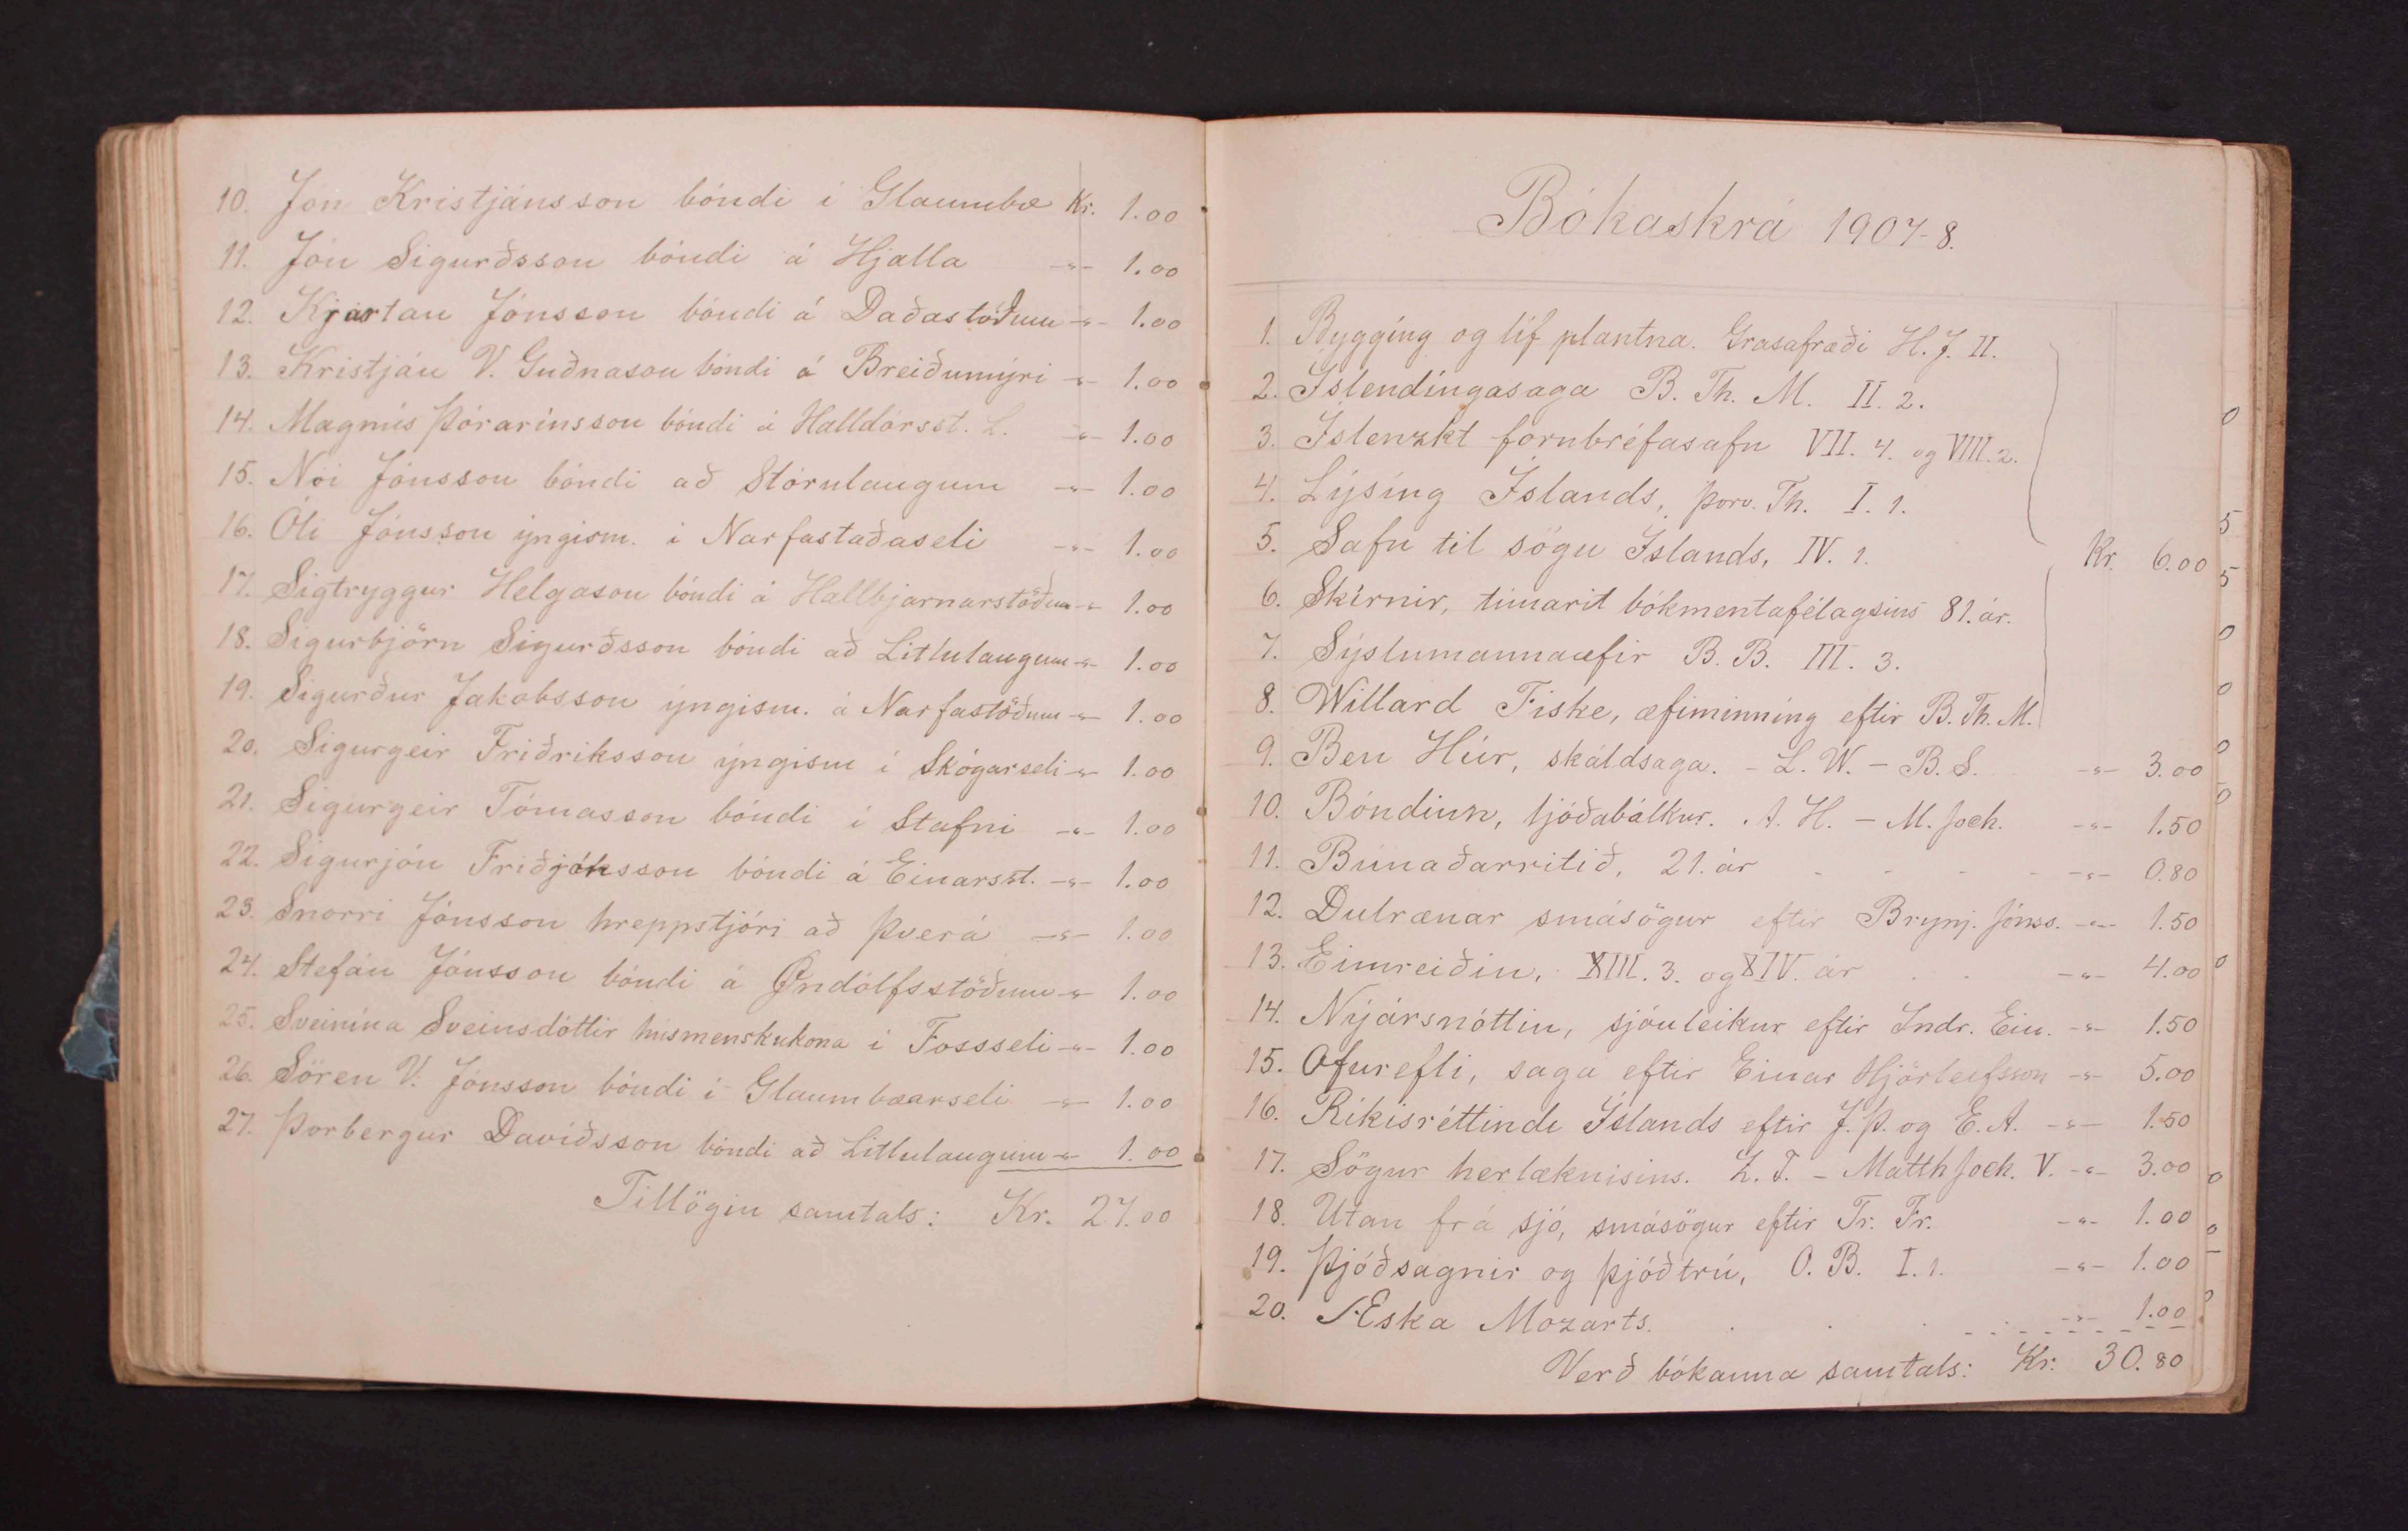 10. Jón Kristjánsson bóndi í Glaumbæ Kr. 1.00
11. Jón Sigurðsson bóndi á Hjalla -„- 1.00
12. Kjartan Jónsson bóndi á Daðastöðum -„- 1.00
13. Kristján V. Guðnason bóndi á Breiðumýri -„- 1.00
14. Magnús Þórarinsson bóndi á Halldórsst. L. -„- 1.00
15. Nói Jónsson bóndi að Stórulaugum -„- 1.00
16. Óli Jónsson yngism. í Narfastaðaseli -„- 1.00
17. Sigtryggur Helgason bóndi á Hallbjarnarstöðum -„- 1.00
18. Sigurbjörn Sigurðsson bóndi að Litlulaugum -„- 1.00
19. Sigurður Jakobsson yngism. á Narfastöðum -„- 1.00
20. Sigurgeir Friðriksson yngism í Skógarseli -„- 1.00
21. Sigurgeir Tómasson bóndi í Stafni -„- 1.00
22. Sigurjón Friðjónsson bóndi á Einarsst. -„- 1.00
23. Snorri Jónsson hreppstjóri að Þverá -„- 1.00
24. Stefán Jónsson bóndi á Öndólfsstöðum -„- 1.00
25. Sveinína Sveinsdóttir húsmenskukona í Fossseli -„- 1.00
26. Sören V. Jónsson bóndi í Glaumbæarseli -„- 1.00
27. Þorbergur Davíðsson bóndi að Litlulaugum -„- 1.00
Tillögin samtals: Kr. 27.00
Bókaskrá 1907-8.
1. Bygging og líf plantna. Grasafræði H. J. II.
2. Íslendingasaga B. Th. M. II. 2.
3. Íslenzkt fornbréfasafn VII. 4. og VIII. 2.
4. Lýsing Íslands, Þorv. Th. I. 1.
5. Safn til sögu Íslands, IV. 1. Kr. 6.00
6. Skírnir, tímarit bókmentafélagsins 81. ár.
7. Sýslumannaæfir B. B. III. 3.
8. Willard Fiske, æfiminning eftir B. Th. M.
9. Ben Húr, skáldsaga. - L. W. - B. S. -„- 3.00
10. Bóndinn, ljóðabálkur. A. H. - M. Joch. -„- 1.50
11. Búnaðarritið, 21. ár - - - - -„- 0.80
12. Dulrænar smásögur eftir Brynj. Jónss. -„- 1.50
13. Eimreiðin, XIII. 3. og XIV. ár . . -„- 4.00
14. Nýársnóttin, sjónleikur eftir Indr. Ein. -„- 1.50
15. Ofurefli, saga eftir Einar Hjörleifsson -„- 5.00
16. Ríkisréttindi Íslands eftir J. Þ. og E. A. -„- 1.50
17. Sögur herlæknisins. Z. T. - Matth Joch. V. -„- 3.00
18. Utan frá sjó, smásögur eftir Tr. Fr. -„- 1.00
19. Þjóðsagnir og þjóðtrú, O. B. I. 1. -„- 1.00
20. Æska Mozarts. . . . -„- 1.00
Verð bókanna samtals: Kr. 30.80